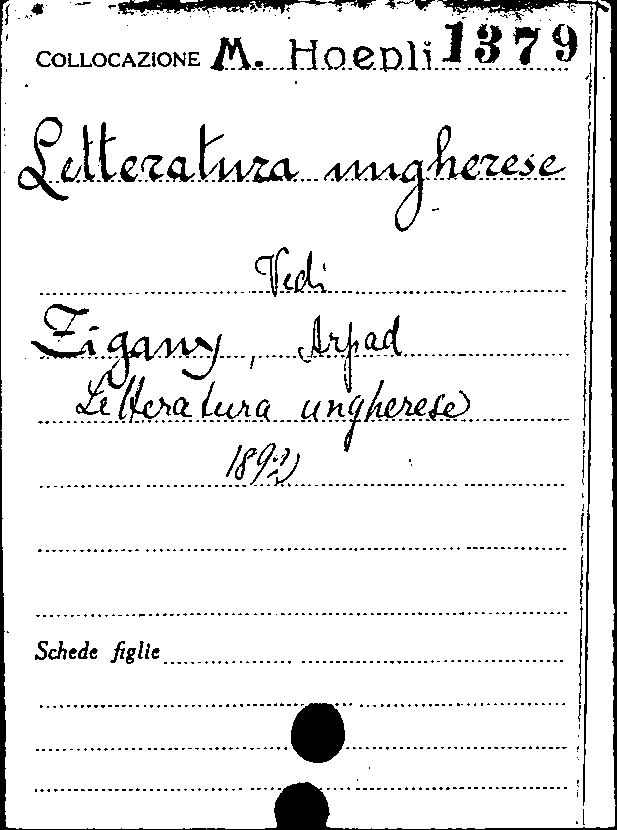 COLLOCAZIONE M. Hoepli 1379
Letteratura ungherese
Vedi
Zigany, Arpad
Letteratura ungherese
Schede figlie